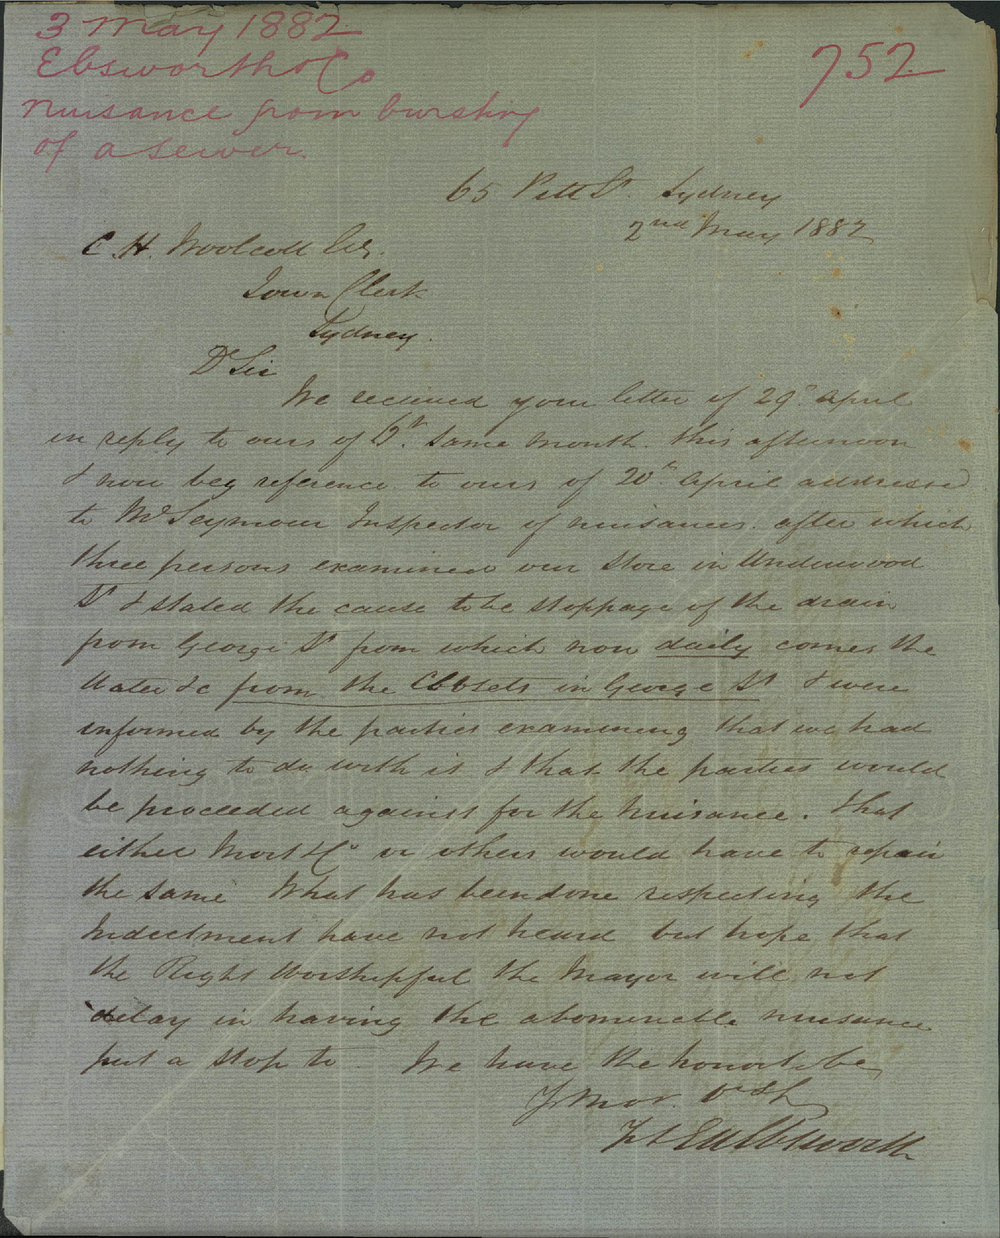 3 May 1882
Ebsworth & Co
nuisance from bursting
of a sewer.
752
65 Pitt St. Sydney
2nd May 1882
C. H. Woolcott Esq.
Town Clerk
Sydney.
Dr Sir
We received your letter of 29th April
in reply to ours of same month this afternoon
& now beg reference to ours of 20th April addressed
to Mr Seymour Inspector of nuisances after which
three persons examined our Store in Underwood
St & stated the cause to be stoppage of the drain
from George St from which now daily comes the
Water &c from the Closets in George St & were
informed by the parties examining that we had
nothing to do with it & that the parties would
be proceeded against for the Nuisance. that
either Mort & Co or others would have to repair
the same What has been done respecting the
Indictment have not heard but hope that
the Right Worshipful the Mayor will not
delay in having the abominable nuisance
put a stop to. We have the honor to be
Ebsworth